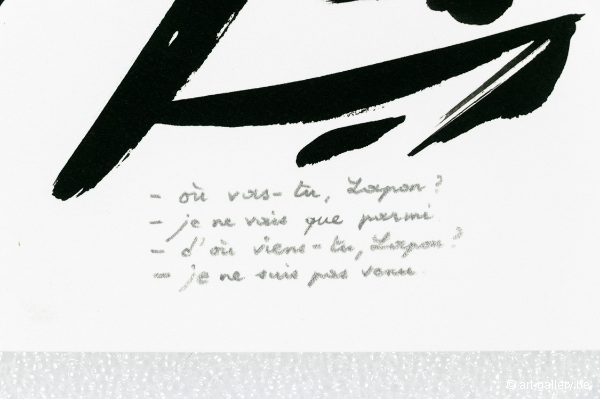 - où vas-tu, Lapon ?
- je ne vais que parmi
- d'où viens-tu, Lapon ?
- je ne suis pas venu
© art-gallery.be